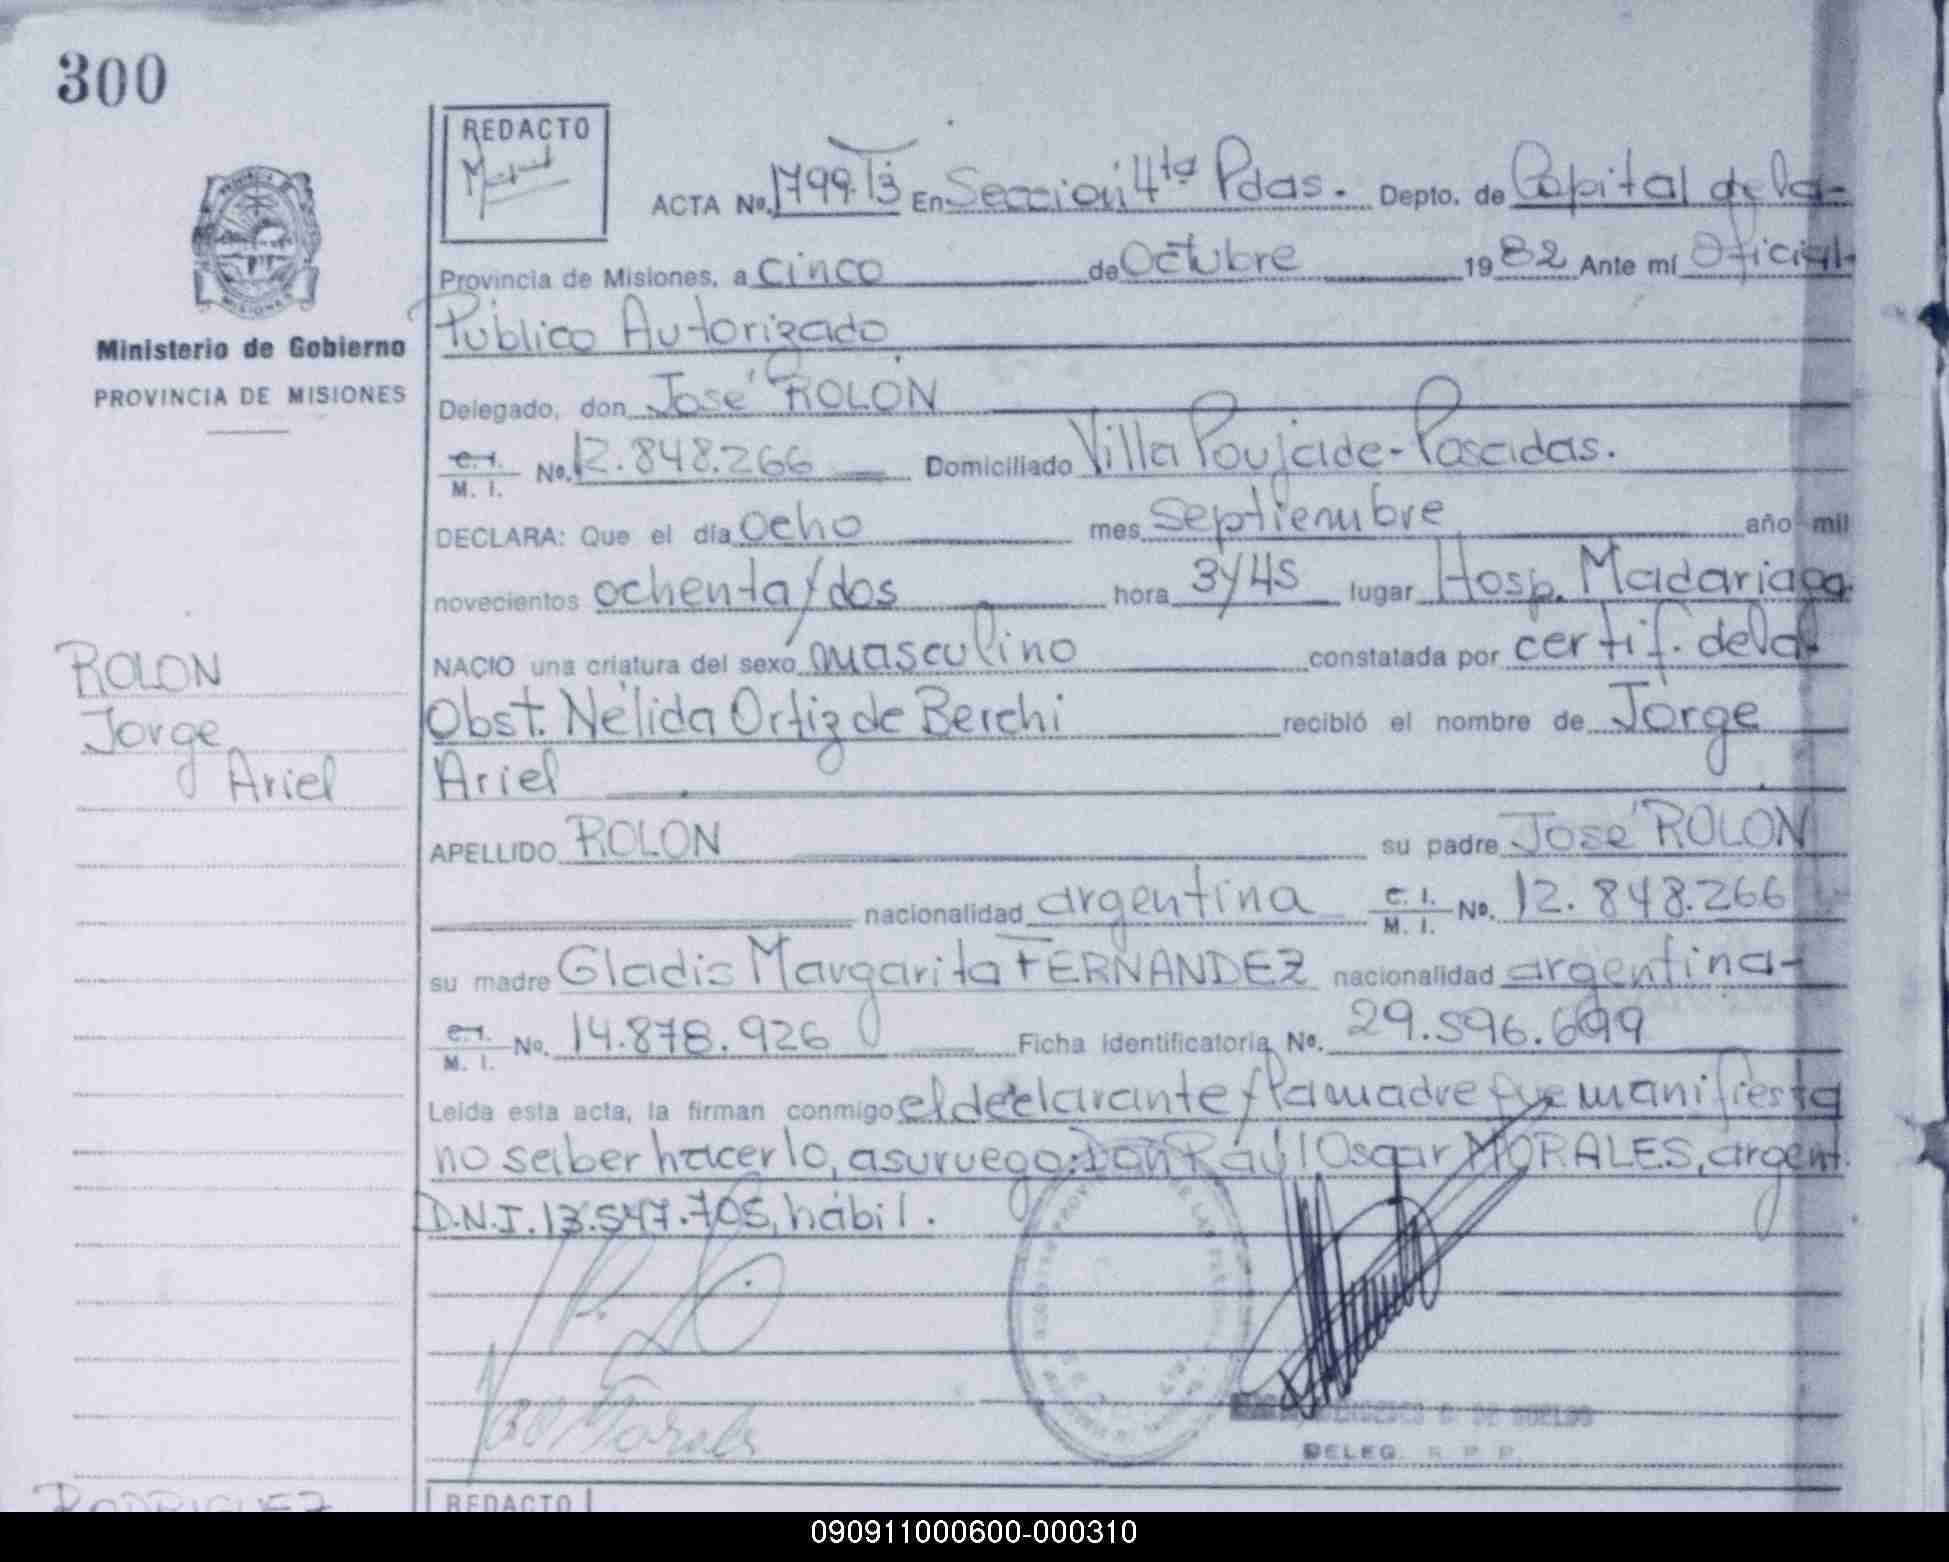 300
REDACTO
ACTA No. 1799.T3 En Sección 4ta Pdas. Depto. de Capital de la-
Provincia de Misiones, a cinco de Octubre 1982 Ante mí Oficial-
Público Autorizado
Ministerio de Gobierno
PROVINCIA DE MISIONES
Delegado, don José ROLON
C. I. M. I. No. 12.848.266 Domiciliado Villa Poujade-Posadas.
DECLARA: Que el día ocho mes septiembre año mil
novecientos ochenta y dos hora 3y45 lugar Hosp. Madariaga
NACIO una criatura del sexo masculino constatada por certif. de la
Obst. Nélida Ortiz de Berchi recibió el nombre de Jorge
Ariel
ROLON
Jorge
Ariel
APELLIDO ROLON su padre José ROLON
nacionalidad argentina C. I. M. I. No. 12.848.266
su madre Gladis Margarita FERNANDEZ nacionalidad argentina-
C. I. M. I. No. 14.878.926 Ficha Identificatoria No. 29.596.699
Leída esta acta, la firman conmigo el declarante y la madre que manifiesta
no saber hacerlo, a su ruego: Don Raúl Oscar MORALES, argent.
D.N.I. 13.547.705, hábil.
Morales
DELEG. R. P. P.
RODRIGUEZ
REDACTO
090911000600-000310